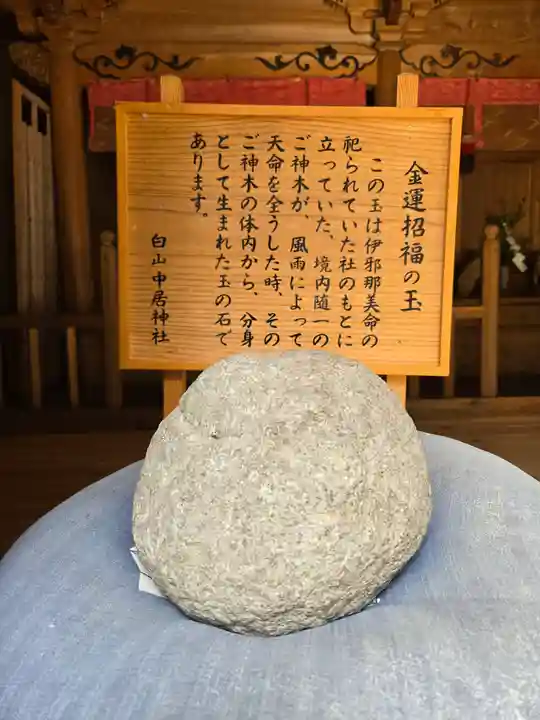 金運招福の玉
この玉は伊邪那美命の
祀られていた社のもとに
立っていた、境内随一の
ご神木が、風雨によって
天命を全うした時、その
ご神木の体内から、分身
として生まれた玉の石で
あります。
白山中居神社